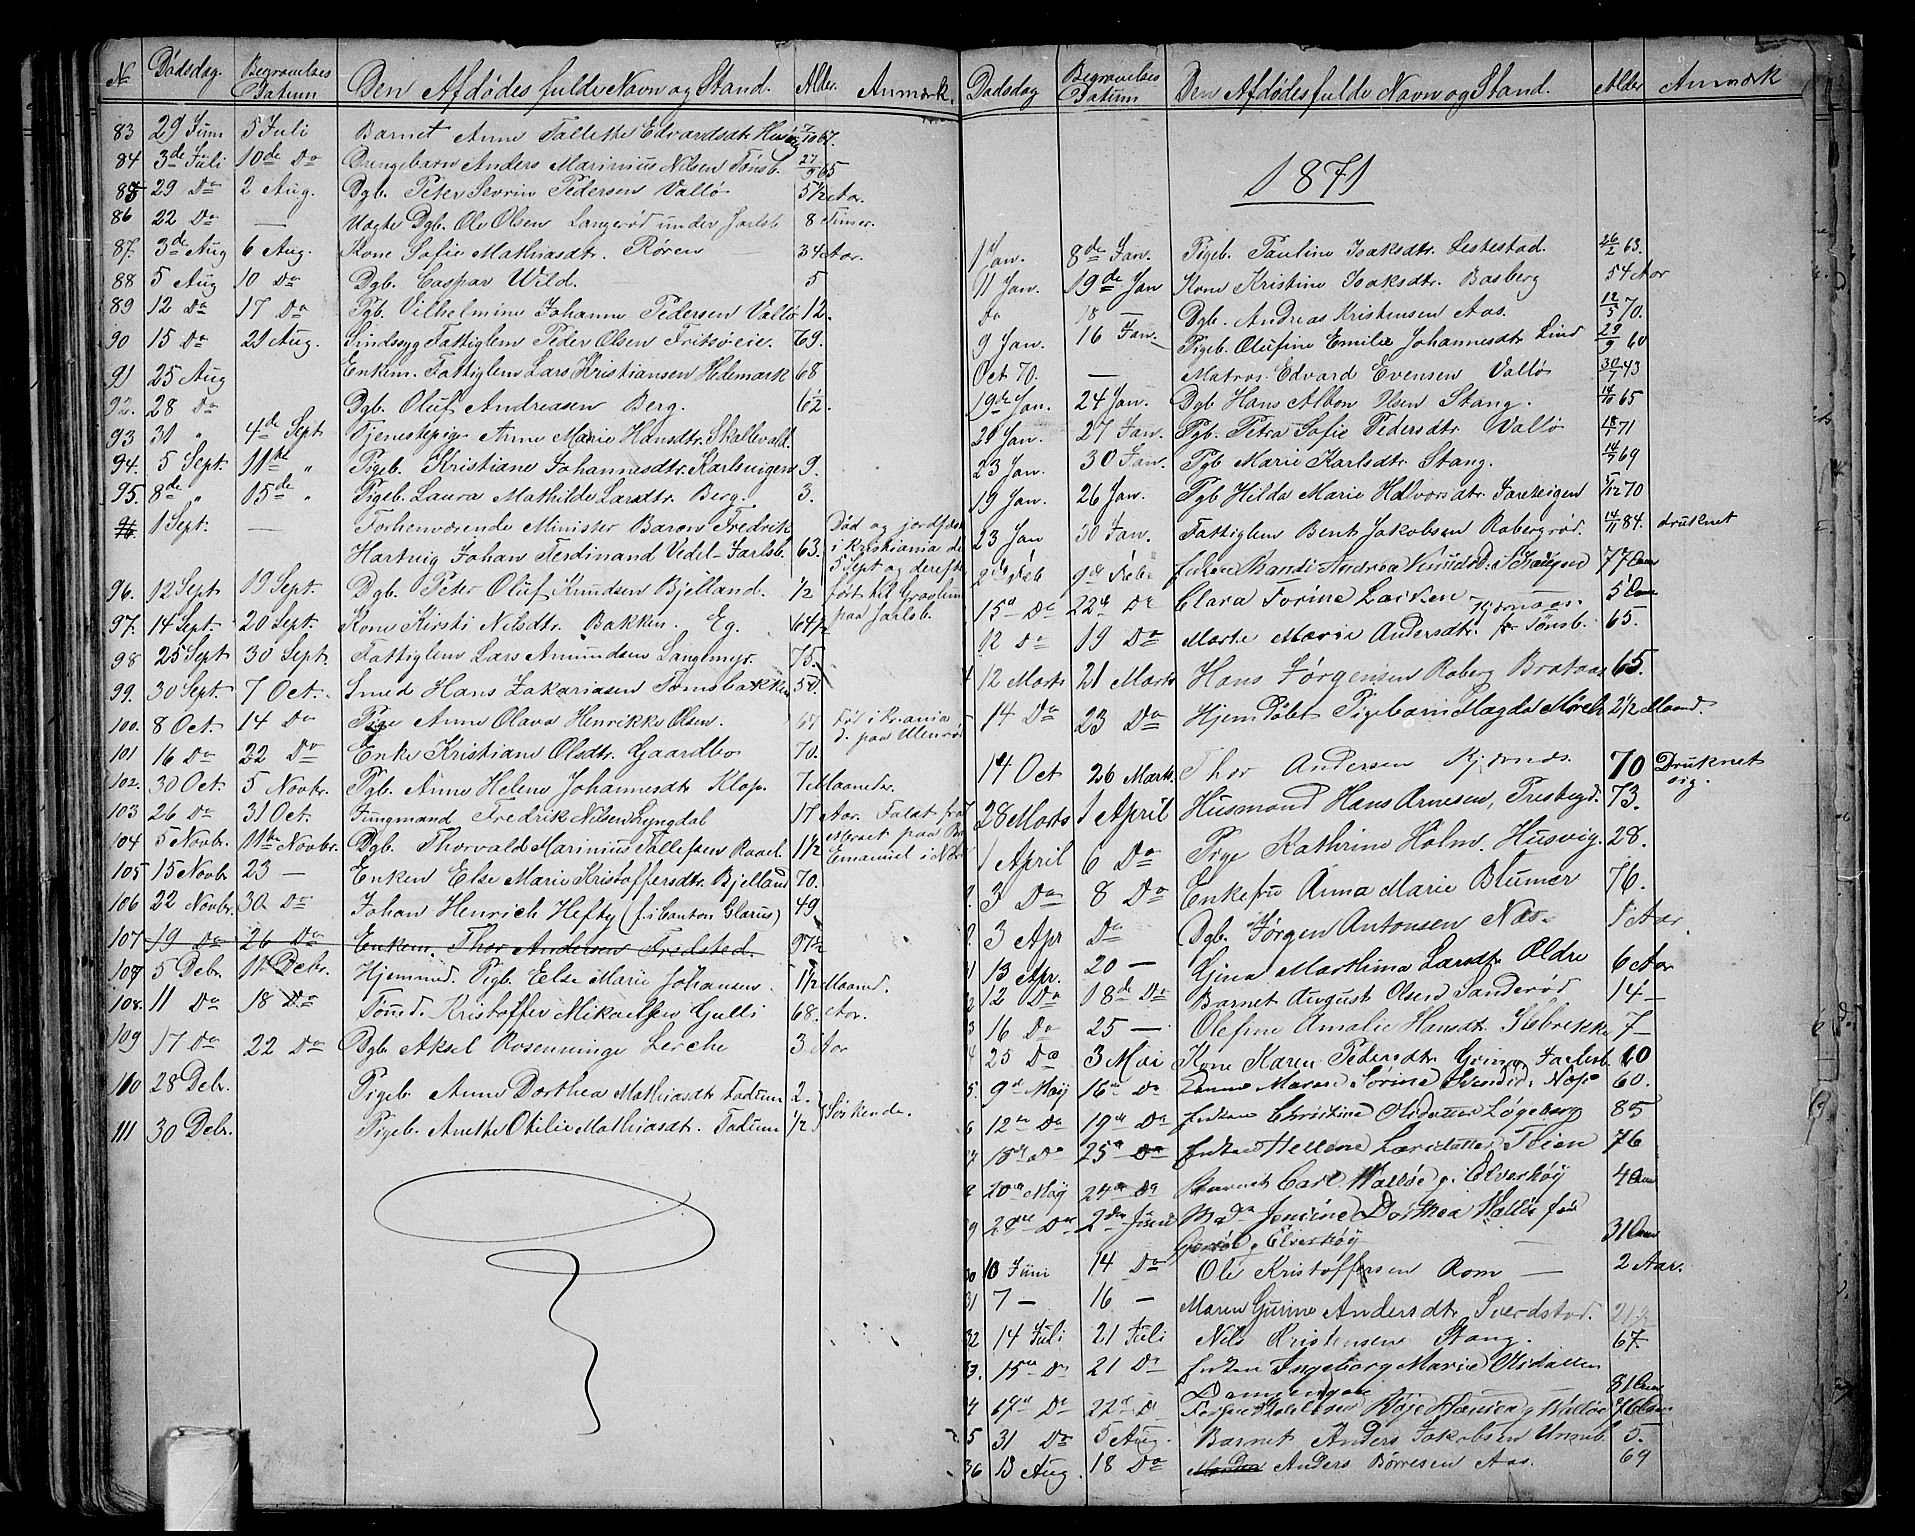 No Dödsdag. Begravelses Datum Den Afdødes fulde Navn og Stand. Alder. Anmærk.
83 29 Juni 5 Juli Barnet Anne Tallette Edvardsdtr Husøe 7/10 67.
84 3de Juli 10de Do Drengebarn Anders Marinius Nilsen Tønsb. 27/9 65
85 29 Do 2 Aug. Dgb. Peter Sevrin Pedersen Vallø 5 1/2 Aar.
86 22 Do — Uægte Dgb. Ole Olsen Langerød under Jarlsb 8 Timer.
87. 3de Aug 6 Aug. Kone Sofie Mathiasdtr. Røren — 34 Aar.
88 5 Aug 10 Do Dgb. Caspar Wild. 5
89 12 Do 17 Do Pgb. Vilhelmine Johanne Pedersen Vallø 12.
90 15 Do 21 Aug. Sindssyg Fattiglem Peder Olsen Fritsøeie. 69.
91 25 Aug Enkem. Fattiglem Lars Kristiansen Hedemark 68
92. 28 Do Dgb. Oluf Andreasen Berg. 6 1/2.
93 31 " 4de Sept Tjenestepige Anne Marie Hansdtr. Skallevold.
94. 5 Sept. 11te " Pigeb. Kristiane Johannesdtr. Karlsvigen 9.
95. 8de " 15de " Pigeb. Laura Mathilde Larsdtr. Berg. 3.
96 1 Sept. — Forhenværende Minister Baron Fredrik Død og jordfæs
Hartvig Johan Ferdinand Vedel-Jarlsb. 63. i Kristiania de
5 Sept og derefter
96. 12 Sept 19 Sept. Dgb. Peter Oluf Knudsen Bjelland. 1/2 ført til Gravlun
97. 14 Sept. 20 Sept. Kone Kirsti Nilsdtr. Bakken. Eg. 64 1/2 paa Jarlsb.
98 25 Sept 30 Sept. Fattiglem Lars Amundsen Langemyr. 75.
99. 30 Sept. 7 Oct. Smed Hans Zakariasen Tomsbakken 50.
100. 8 Oct. 14 Do Pige Anne Olava Henrikke Olsen. Fød i Krania
101 16 Do 22 Do Enke Kristiane Olsdtr. Gaardbo 70.
102. 30 Oct. 5 Novbr. Pgb. Anne Helene Johannesdtr Klop. 7 Maaneder.
103 26 Do 31 Oct. Jungmand Fredrik Nilsen Lyngdal 17 Aar. Faldt fra
104 5 Novbr. 11te Novbr. Dgb. Thorvald Marinius Tollefsen Raael. 1 1/2 paa
105 15 Novbr 23 — Enken Else Marie Kristoffersdtr. Bjelland 70. Emanuel i
106 22 Novbr. 30 Do Johan Henrich Hefty (f. i Canton Glarus) 49
107 19 Do 26 Do Enkem. Thor Andersen Fredsted. 97 1/2
107 5 Debr. 11 Debr. Hjemmed. Pigb. Else Marie Johansen. 1 1/2 Maaned.
108. 11 Do 18 Do Tømd. Kristoffer Mikaelsen Gulli 68. Aar.
109 17 Do 22 Do Dgb. Aksel Rosenninge Lerche 3 Aar
110 28 Debr. Pigeb. Anne Dorthea Mathiasdtr Fadum 2.
111 30 Debr. Pigeb. Anette Otilie Mathiasdtr. Fadum 1/2 } Søskende.
Dødsdag Begravelses Datum Den Afdødes fulde Navn og Stand. Alder Anmærk
1871
1 Jan. 8de Jan. Pigeb. Pauline Isaksdtr. Lestestad. 26/2 63.
11 Jan. 19de Jan Kone Kristine Isaksdtr. Basberg 54 Aar
Do 18 — Dgb. Andreas Kristensen Aas. 12/5 70.
9 Jan. 16 Jan. Pigeb. Olufine Emilie Johannesdtr Lind 29/9 60
Oct 70. — Matros Edvard Evensen Vallø 30/7 43
19de Jan. 24 Jan. Dgb Hans Albon Olsen Stang. 14/10 65
21 Jan. 27 Jan. Pgb. Petra Sofie Pedersdtr Vallø 18/1 71
23 Jan. 30 Jan. Pgb Marie Karlsdtr. Stang. 14/7 69
19 Jan. 26 Jan. Pgb Hilda Marie Halvorsdtr. 7/12 70
23 Jan 30 Jan. Fattiglem Bent Jakobsen Robergrød. 14/11 84. druknet
2de Feb 9de Feb. Enken Randi Andrea 77 Aar
15de Do 22de Do Clara Torine 5 Aar
12 Do 19 Do Marte Marie Andersdtr. Kjærnaes. Tønsb. 65.
12 Marts 21 Marts Hans Jørgensen Roberg Brataas 65.
14 Do 23 Do Hjemdøbt Pigebarn Magda Mørch 2 1/2 Maaned.
14 Oct 26 Marts. Thor Andersen Kjærnes. 70 Druknet sig.
28 Marts 1 April Husmand Hans Arnesen, Trestegd. 73.
1 April 6 Do Pige Kathrine Holm. Husvig. 28.
3 Do 8 Do Enkefru Anna Marie Blumer 76.
3 Apr Do Dgb. Jørgen Antonsen Næs. 1 Aar.
13 Apr. 20 — Gina Marthina Larsdtr Oldre 6 Aar
12 Do 18de Do Barnet August Olsen Sanderød 14 —
16 Do 25 — Olefine Amalie Hansdtr. Slebrekke 7 —
25 Do 3 Mai Kone Karen Pedersdtr. Jarlsb. 60
9de Maij 16de Do Maren Sørine 60.
12te Do 19de Do Enken Christine Olsdatter Løgeberg 85
18de Do 25de Do Enken Hellene Larsdatter Teien 76
20de Maij 24de Do Barnet Carl Walløe p. Elverhøij 4 Aar
Do 2den Junii Mda Jensine Dorthea Walløe fød
p. Elverhøij — 31 Aar
30 10 Juni 14 Do Ole Kristoffersen Rom — 2 Aar.
31 7 — 16 — Maren Gurine Andersdtr. Sverdstad.
32 14 Juli 21 Juli Nils Kristensen Stang. 67.
3. 15de Do 21 Do Enken Ingeborg Marie Olsdatter
81 Aar
4 17de Do 22de D Hansen p Walløe
5 31 Do 5 Aug. Barnet Anders Jakobsen Unneb. 5.
36 13 Aug. 18 Do Anders Børresen Aas. 69